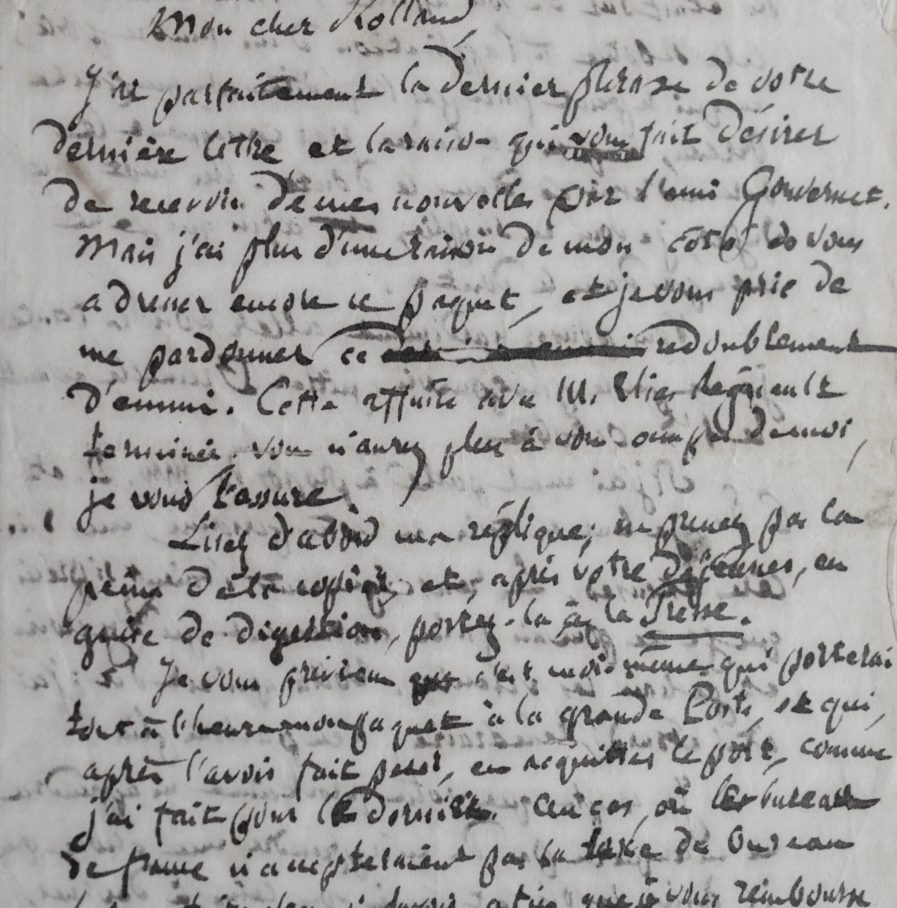 Mon cher Rolland,
J'ai parfaitement la dernier phrase de votre
dernière lettre et la raison qui vous fait désirer
de recevoir de mes nouvelles par l'ami Gouvernet.
Mais j'ai plus d'une raison de mon côté de vous
adresser encore ce paquet, et je vous prie de
me pardonner ce redoublement
d'ennui. Cette affaire avec M. Elias Regnault
terminée, vous n'aurez plus à vous occuper de moi,
je vous l'assure.
Lisez d'abord ma réplique; ne prenez pas la
peine de la copier, et, après votre déjeuner, en
guise de digestion, portez-la à la Presse.
Je vous préviens que c'est moi même qui porterai
tout à l'heure mon paquet à la grande Poste, et qui,
après l'avoir fait peser, en acquittes le port, comme
j'ai fait pour le dernier. Au cas où les bureaux
de france n'accepteraient pas la taxe du bureau
que je vous rembourse